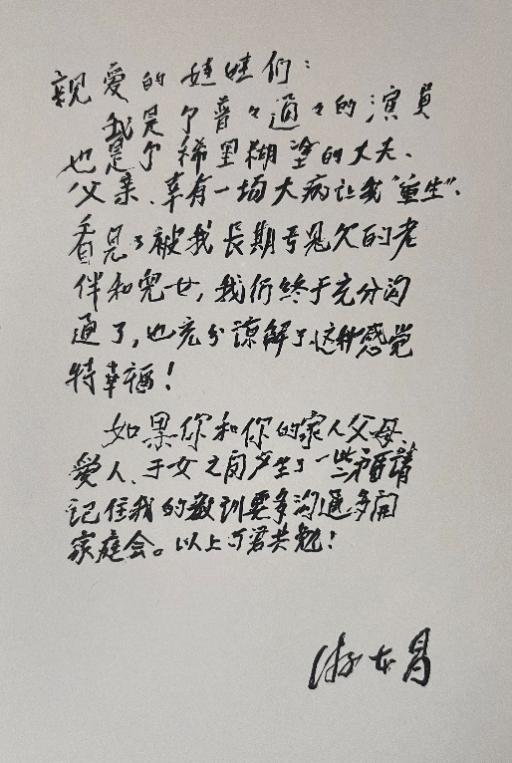 親爱的娃娃们：
我是个普々通々的演員
也是个稀里糊塗的丈夫、
父亲、幸有一场大病让我"重生"。
看見了被我長期亏欠的老
伴和兒女，我们终于充分沟
通了，也充分諒解了这种感觉
特幸福！
如果你和你的家人父母、
愛人、子女之间产生了一些矛盾請
記住我的教训要多沟通多開
家庭会。以上与君共勉！
游本昌